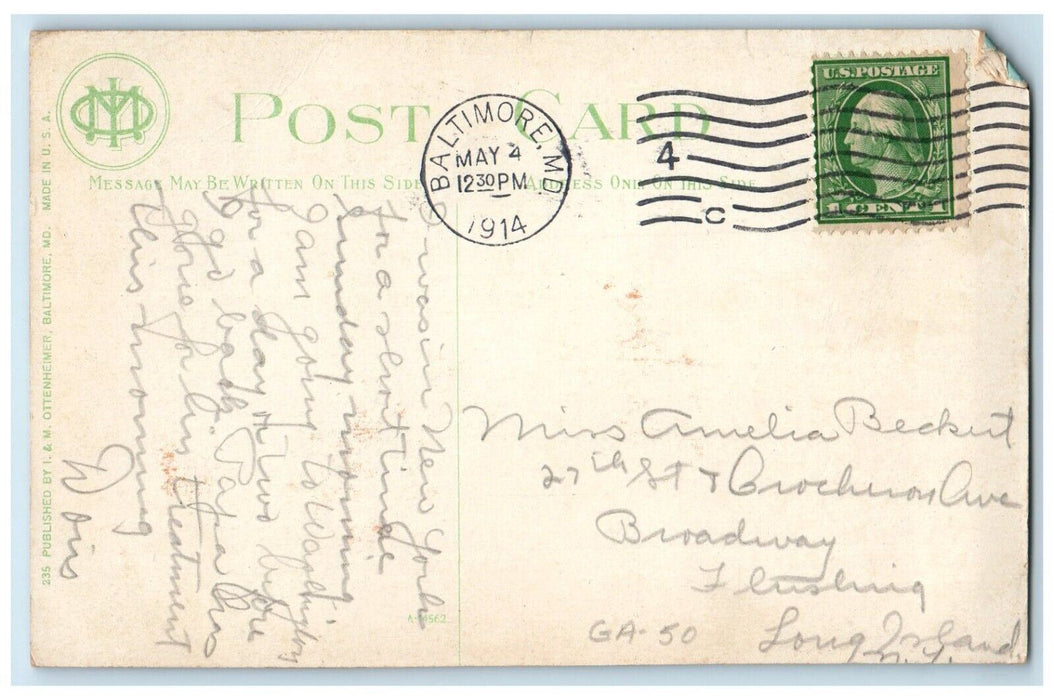 POST CARD
MESSAGE MAY BE WRITTEN ON THIS SIDE
ADDRESS ONLY ON THIS SIDE
BALTIMORE, MD.
MAY 4
12 30 PM
1914
4
C
U.S. POSTAGE
1 CENT
235 PUBLISHED BY I. & M. OTTENHEIMER, BALTIMORE, MD. MADE IN U.S.A.
I was in New York
for a short time
Sunday morning
I am going to Washington
for a day or two before
I go back. Papa has
gone for his treatment
this morning
Doris
A-14562
Miss Amelia Beckert
27th St & Crocheron Ave
Broadway
Flushing
Long Island
N.Y.
GA-50